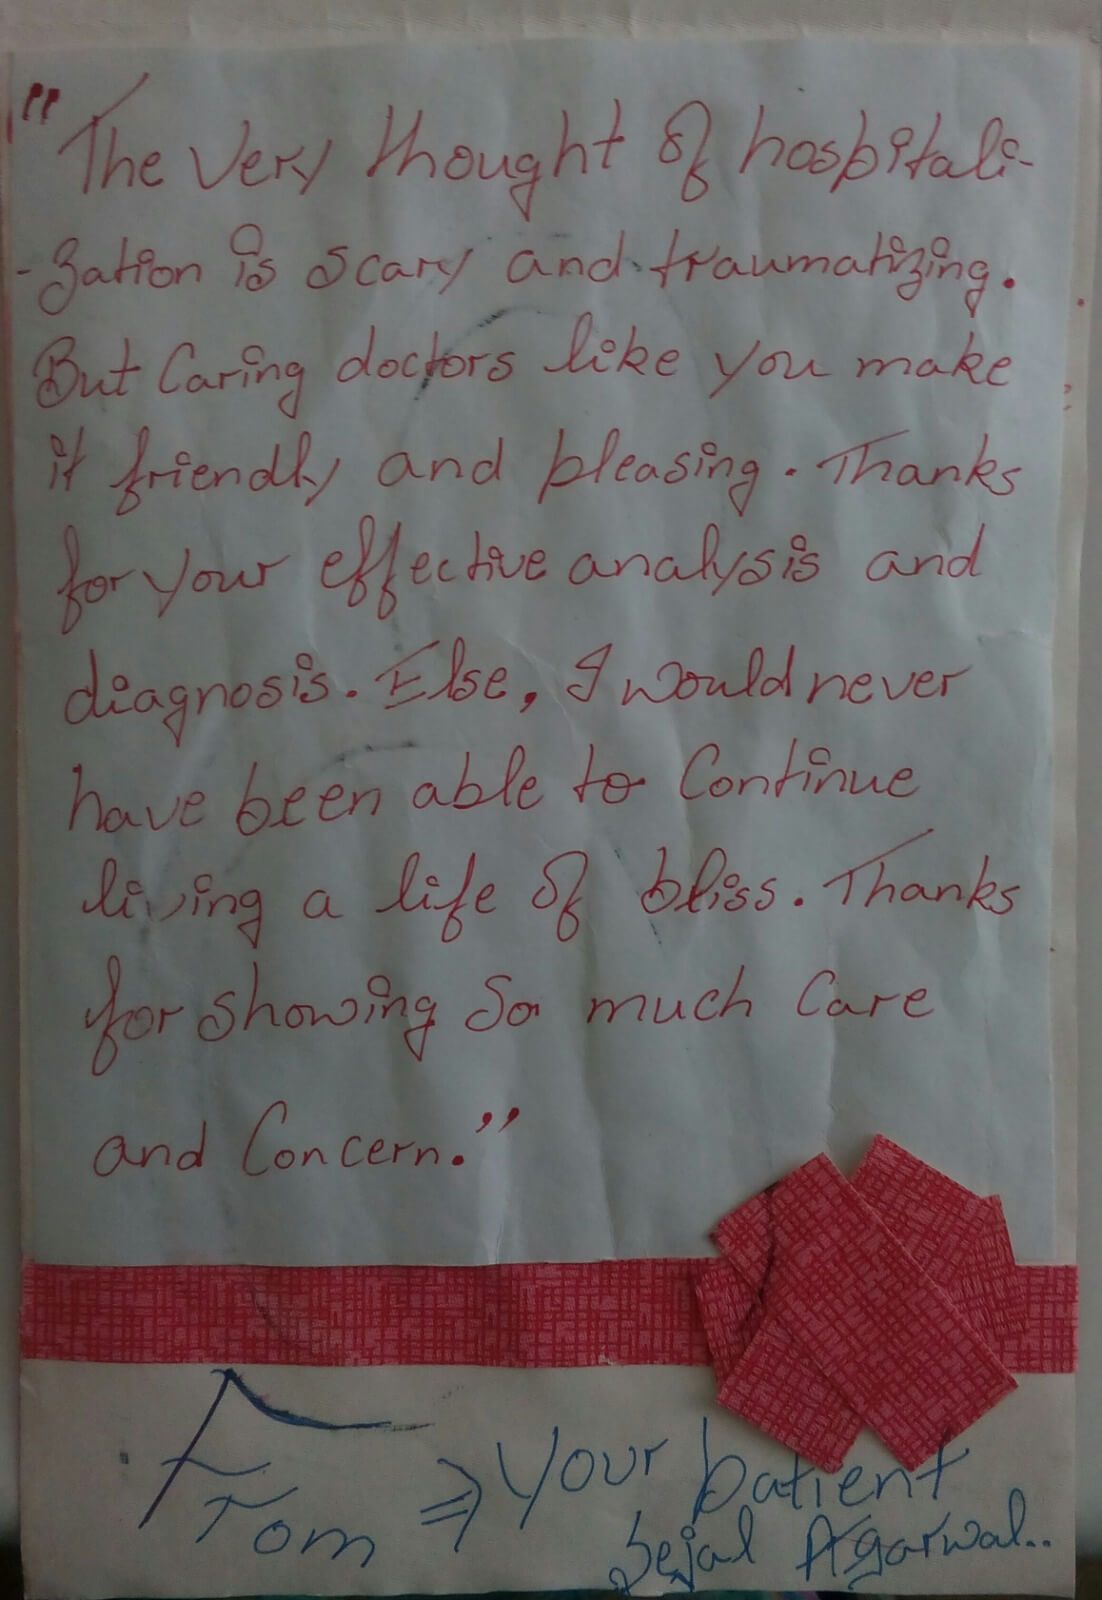 "The very thought of hospitali-
-zation is scary and traumatizing.
But Caring doctors like you make
it friendly and pleasing. Thanks
for your effective analysis and
diagnosis. Else, I would never
have been able to Continue
living a life of bliss. Thanks
for showing So much Care
and Concern."
From ⇒ Your patient
Sejal Agarwal..